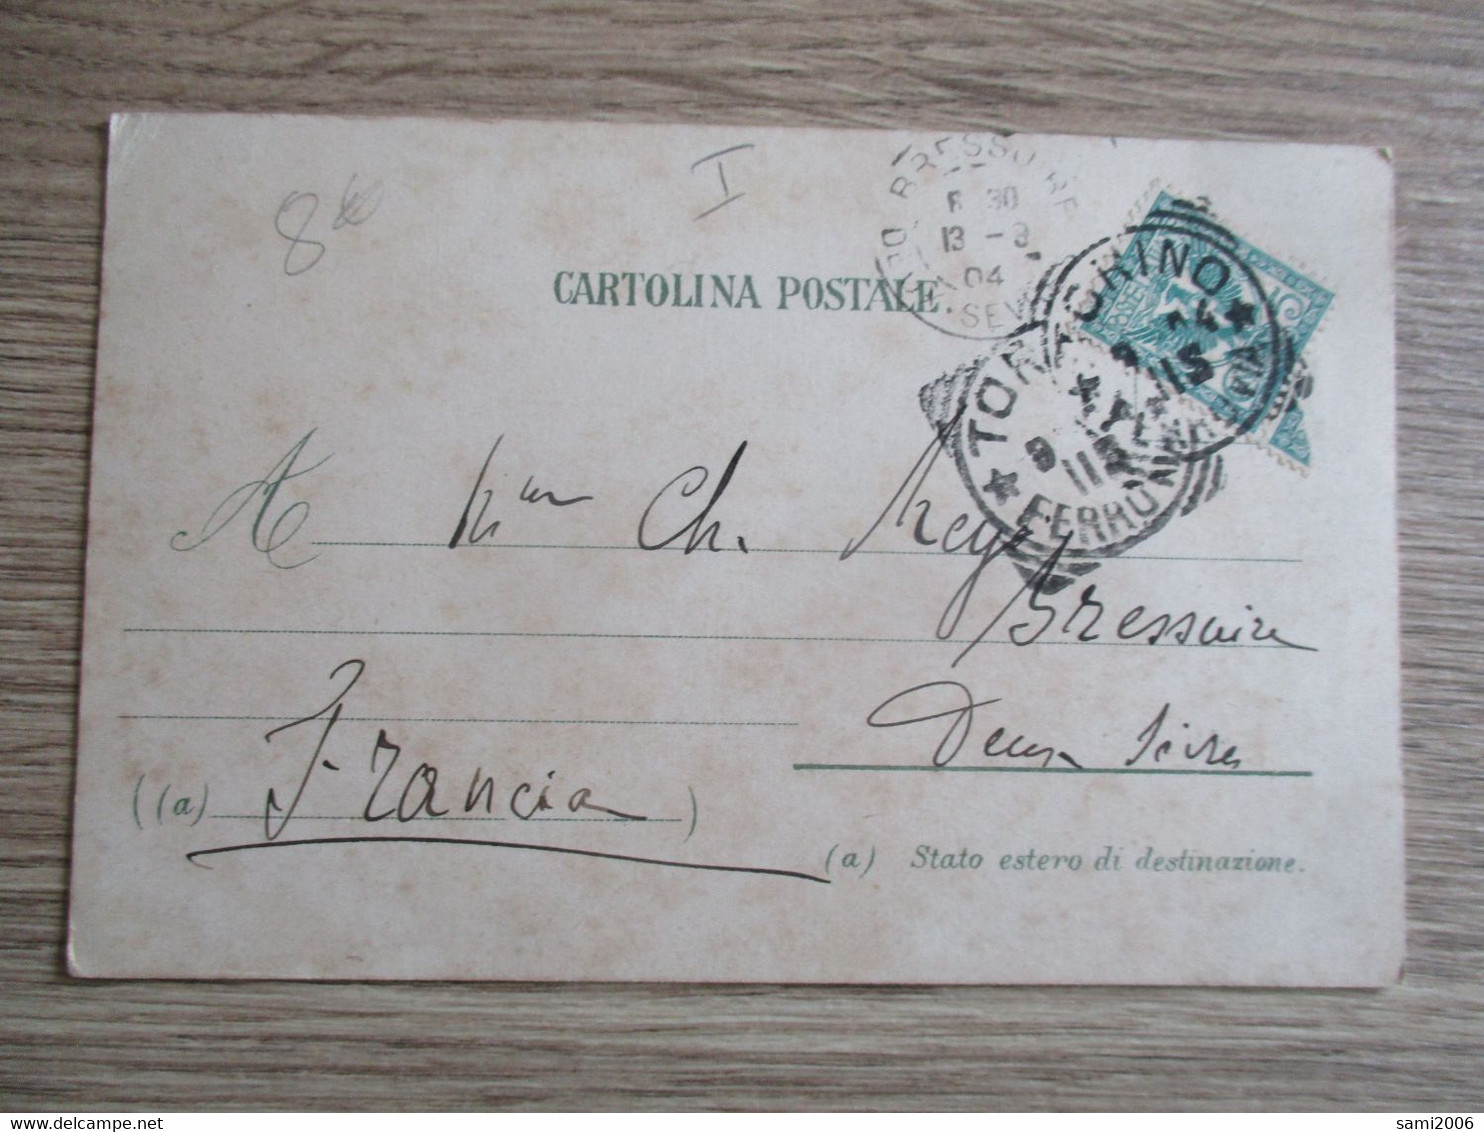 8
I
BRESSUIRE
8 30
13 - 3
04
SEV
CARTOLINA POSTALE
TORINO
15
TORINO
9
11 S
FERROVIA
A Mme Ch. 
Bressuire
Deux Sèvres
((a) Francia )
(a) Stato estero di destinazione.
delcampe.net
sami2006